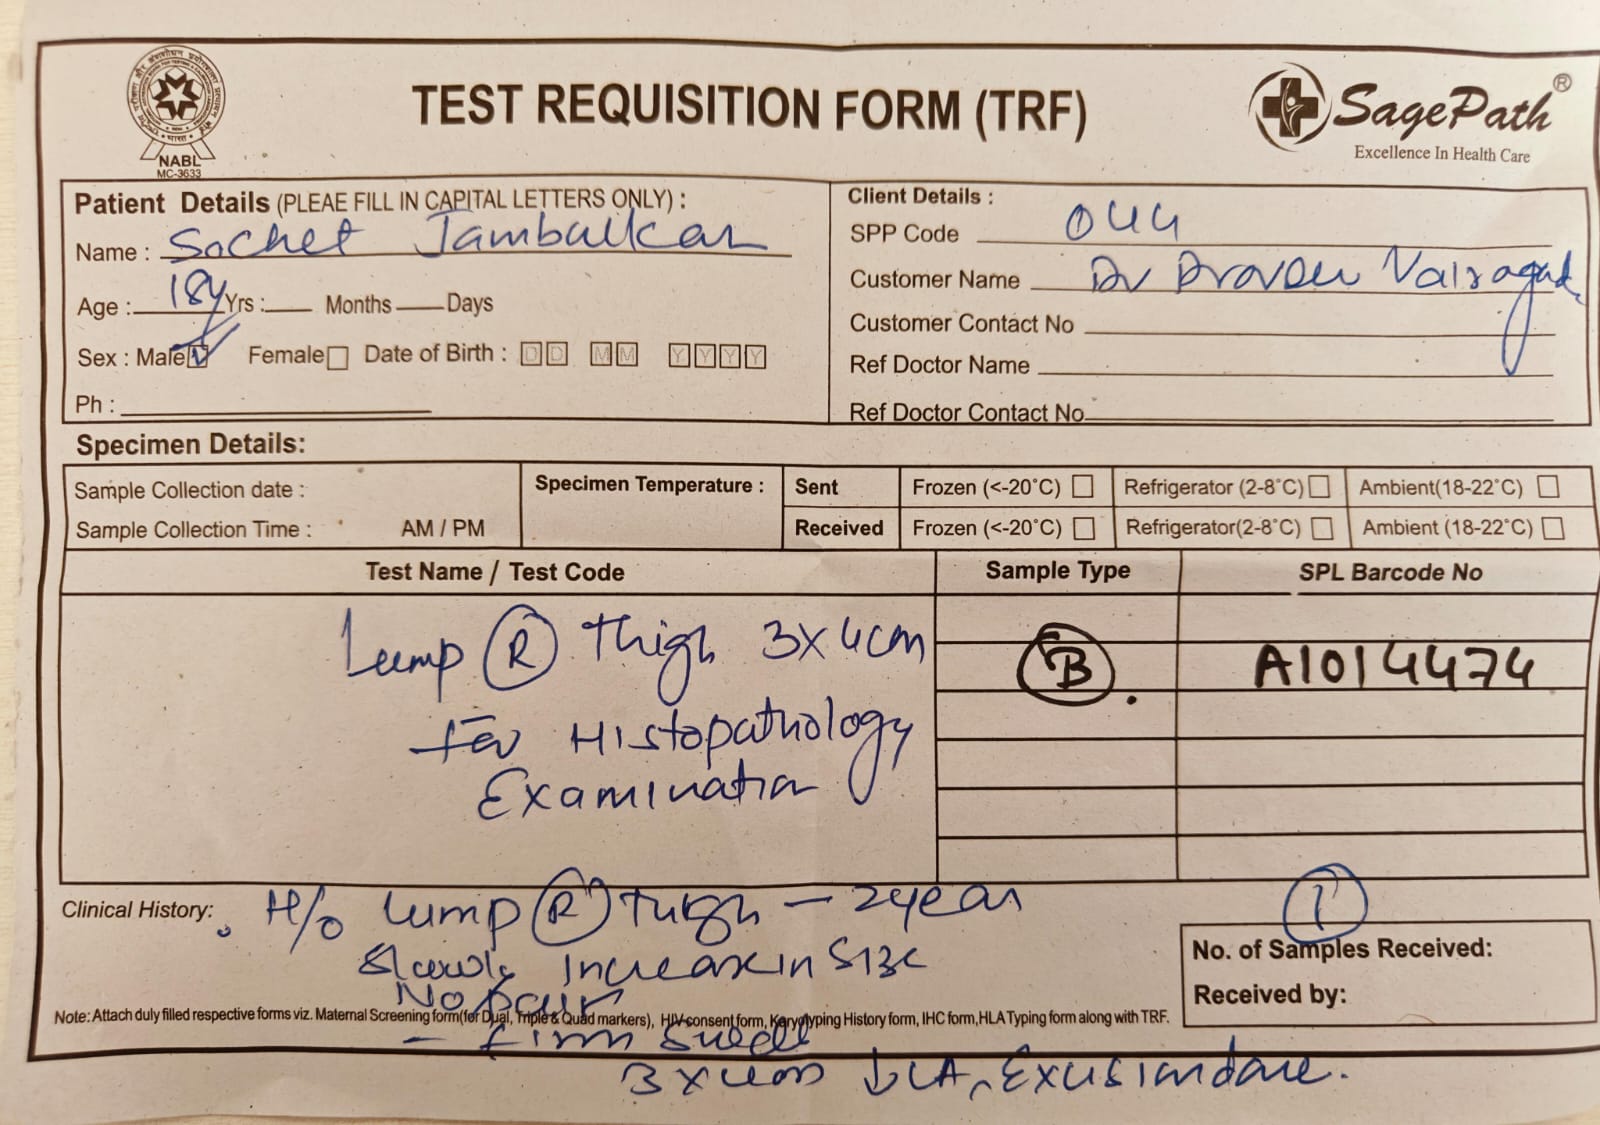 TEST REQUISITION FORM (TRF)
NABL
MC-3633
SagePath®
Excellence In Health Care
Patient Details (PLEAE FILL IN CAPITAL LETTERS ONLY) :
Name : Sachet Jambulkar
Age : 18y Yrs : Months Days
Sex : Male Female Date of Birth : DD MM YYYY
Ph :
Client Details :
SPP Code 044
Customer Name Dr Praveen Vairagad
Customer Contact No
Ref Doctor Name
Ref Doctor Contact No
Specimen Details:
Sample Collection date :
Sample Collection Time : AM / PM
Specimen Temperature :
Sent Frozen (<-20°C) Refrigerator (2-8°C) Ambient(18-22°C)
Received Frozen (<-20°C) Refrigerator(2-8°C) Ambient (18-22°C)
Test Name / Test Code Sample Type SPL Barcode No
Lump (R) Thigh 3x4cm
for Histopathology
Examination
B A1014474
Clinical History: H/o Lump (R) thigh - 2year
Slowly increase in size
No pain
- firm
3x4cm ↓LA, Excision done.
1
No. of Samples Received:
Received by:
Note: Attach duly filled respective forms viz. Maternal Screening form(for Dual, Triple & Quad markers), HIV consent form, Karyotyping History form, IHC form,HLA Typing form along with TRF.